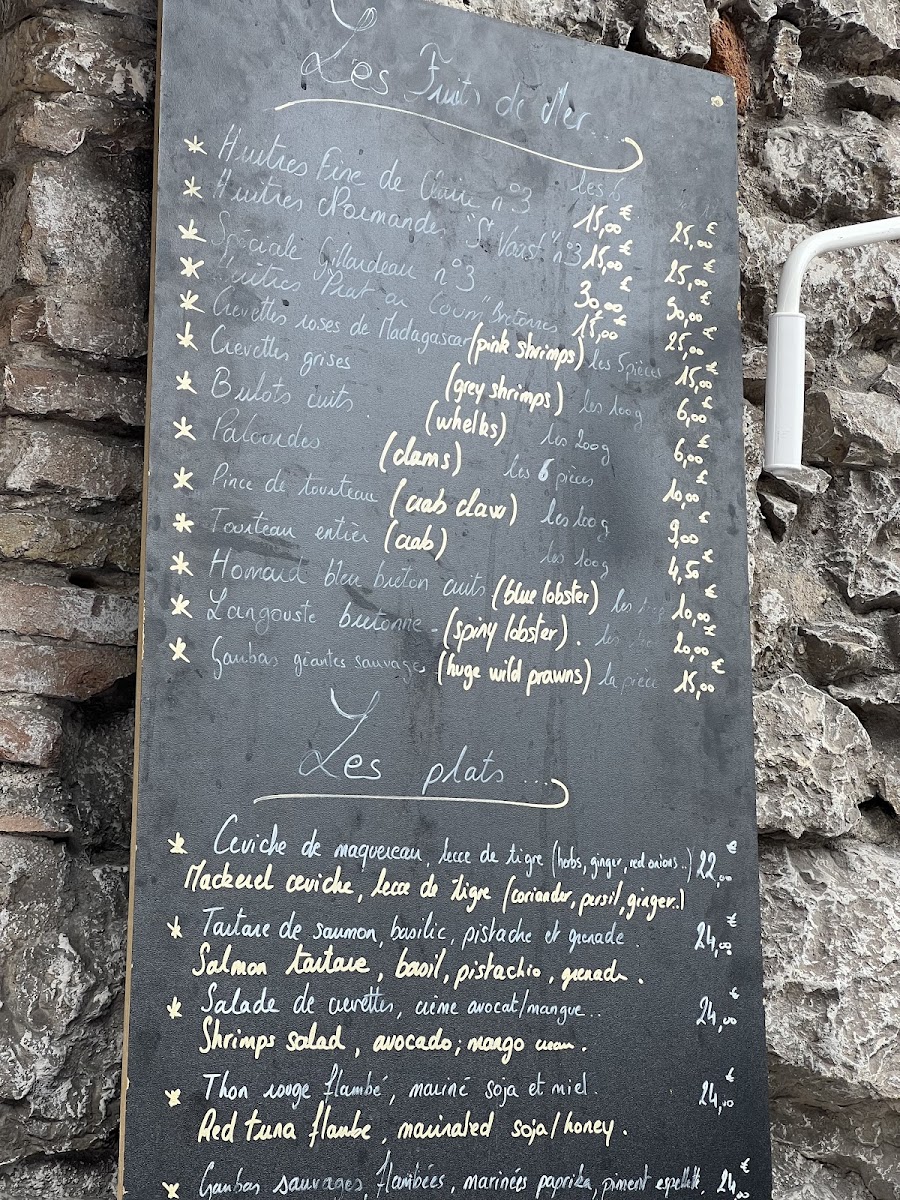 Les Fruits de Mer...
les
* Huitres Fine de Claire n°3 15,00€ 25,00€
* Huitres Normandes "St Vaast" n°3 15,00€ 25,00€
* Spéciale Gillardeau n°3 30,00€ 50,00€
* Huitres "Prat ar Coum" Bretonnes 15,00€ 25,00€
* Crevettes roses de Madagascar (pink shrimps) les 5 pièces 15,00€
* Crevettes grises (grey shrimps) les 100g 6,00€
* Bulots cuits (whelks) les 200g 6,00€
* Palourdes (clams) les 6 pièces 10,00€
* Pince de tourteau (crab claw) les 100g 9,00€
* Tourteau entier (crab) les 100g 4,50€
* Homard bleu breton cuits (blue lobster) les 10,00€
* Langouste bretonne - (spiny lobster). les 20,00€
* Gambas géantes sauvages (huge wild prawns) la pièce 15,00€
Les plats ...
* Ceviche de maquereau, lecce de tigre (herbs, ginger, red onions..) 22,00€
Mackerel ceviche, lecce de tigre (coriander, persil, ginger..)
* Tartare de saumon, basilic, pistache et grenade. 24,00€
Salmon tartare, basil, pistachio, grenade.
* Salade de crevettes, crème avocat/mangue.. 24,00€
Shrimps salad, avocado; mango cream.
* Thon rouge flambé, mariné soja et miel. 24,00€
Red tuna flambe, mairnated soja/honey.
* Gambas sauvages, flambées, marinées paprika, piment espelette, 24,00€